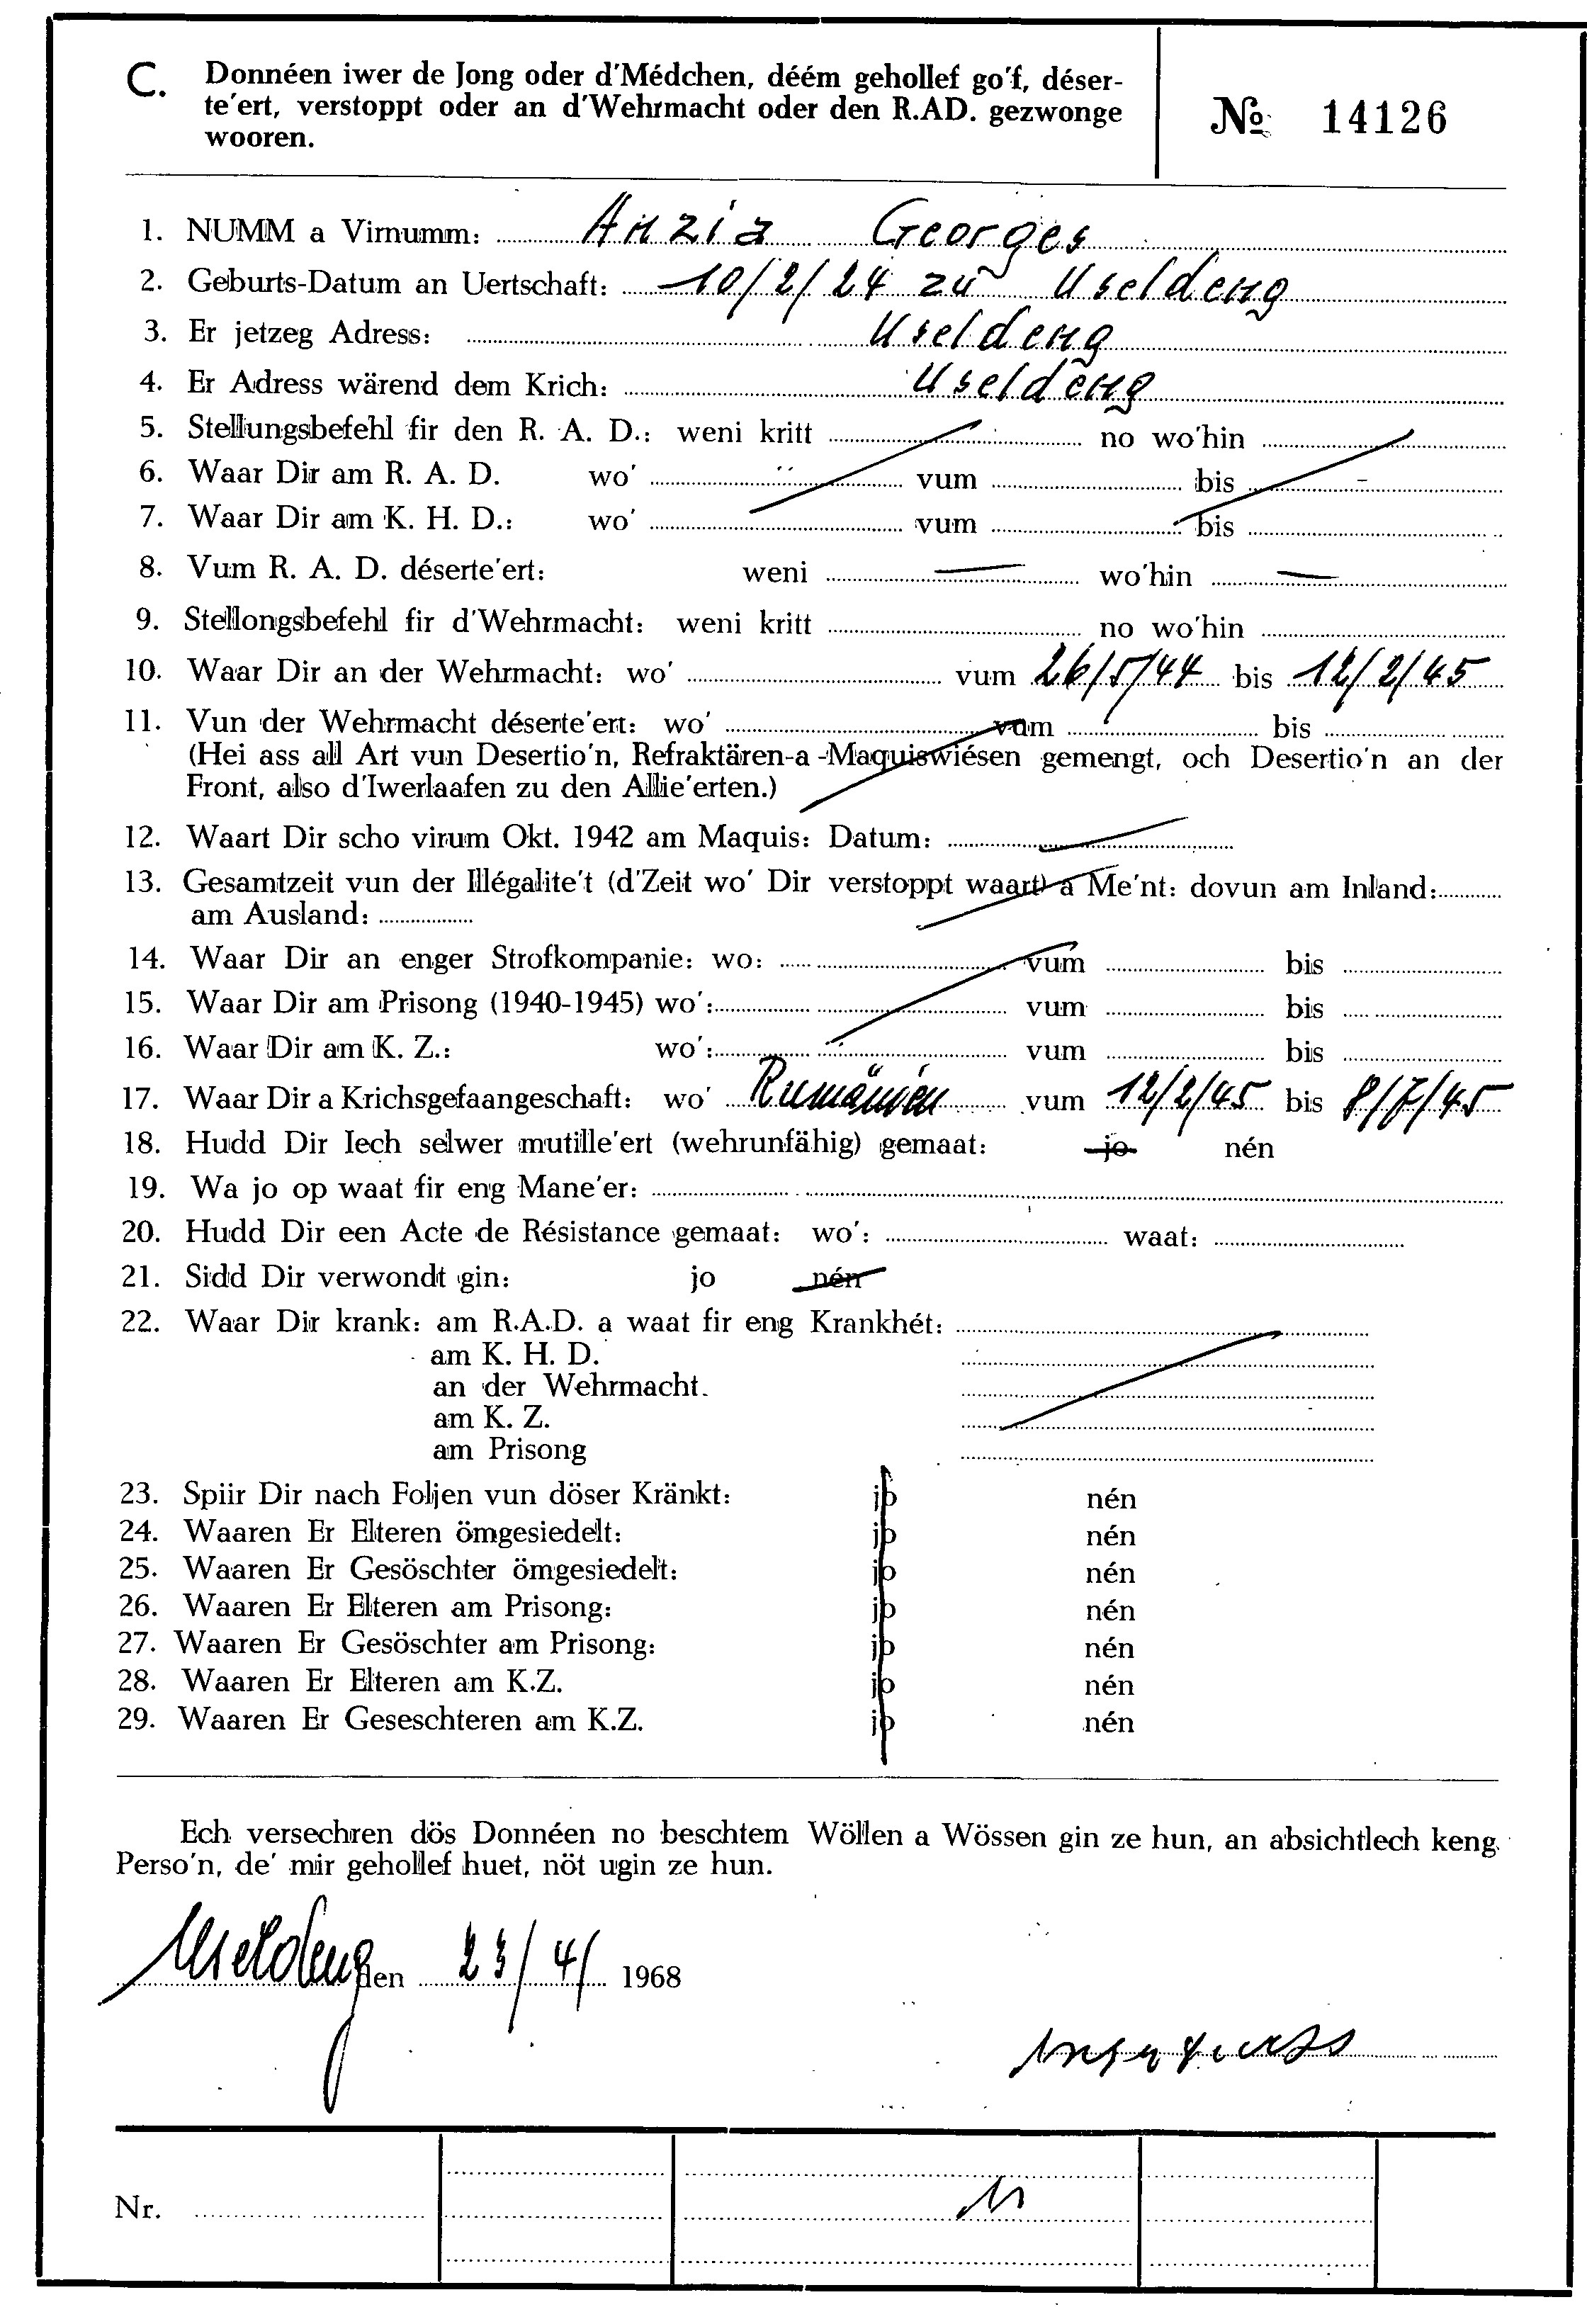 C. Donnéen iwer de Jong oder d'Médchen, déém gehollef go'f, déser-
te'ert, verstoppt oder an d'Wehrmacht oder den R.AD. gezwonge
wooren.
№ 14126
1. NUMM a Virnumm: Anzia Georges
2. Geburts-Datum an Uertschaft: 10/2/24 zu Useldeng
3. Er jetzeg Adress: Useldeng
4. Er Adress wärend dem Krich: Useldeng
5. Stellungsbefehl fir den R. A. D.: weni kritt no wo'hin
6. Waar Dir am R. A. D. wo' vum bis
7. Waar Dir am K. H. D.: wo' vum bis
8. Vum R. A. D. déserte'ert: weni — wo'hin —
9. Stellongsbefehl fir d'Wehrmacht: weni kritt no wo'hin
10. Waar Dir an der Wehrmacht: wo' vum 26/5/44 bis 12/2/45
11. Vun der Wehrmacht déserte'ert: wo' vum bis
(Hei ass all Art vun Desertio'n, Refraktären-a -Maquiswiésen gemengt, och Desertio'n an der
Front, also d'Iwerlaafen zu den Allie'erten.)
12. Waart Dir scho virum Okt. 1942 am Maquis: Datum:
13. Gesamtzeit vun der Illégalite't (d'Zeit wo' Dir verstoppt waart) a Me'nt: dovun am Inland:
am Ausland:
14. Waar Dir an enger Strofkompanie: wo: vum bis
15. Waar Dir am Prisong (1940-1945) wo': vum bis
16. Waar Dir am K. Z.: wo': vum bis
17. Waar Dir a Krichsgefaangeschaft: wo' Rumänien vum 12/2/45 bis 8/7/45
18. Hudd Dir Iech selwer mutille'ert (wehrunfähig) gemaat: jo nén
19. Wa jo op waat fir eng Mane'er:
20. Hudd Dir een Acte de Résistance gemaat: wo': waat:
21. Sidd Dir verwondt gin: jo nén
22. Waar Dir krank: am R.A.D. a waat fir eng Krankhét:
am K. H. D.
an der Wehrmacht.
am K. Z.
am Prisong
23. Spiir Dir nach Foljen vun döser Kränkt: jo nén
24. Waaren Er Elteren ömgesiedelt: jo nén
25. Waaren Er Gesöschter ömgesiedelt: jo nén
26. Waaren Er Elteren am Prisong: jo nén
27. Waaren Er Gesöschter am Prisong: jo nén
28. Waaren Er Elteren am K.Z. jo nén
29. Waaren Er Geseschteren am K.Z. jo nén
Ech versechren dös Donnéen no beschtem Wöllen a Wössen gin ze hun, an absichtlech keng
Perso'n, de' mir gehollef huet, nöt ugin ze hun.
Useldeng den 23/4/ 1968
Nr.